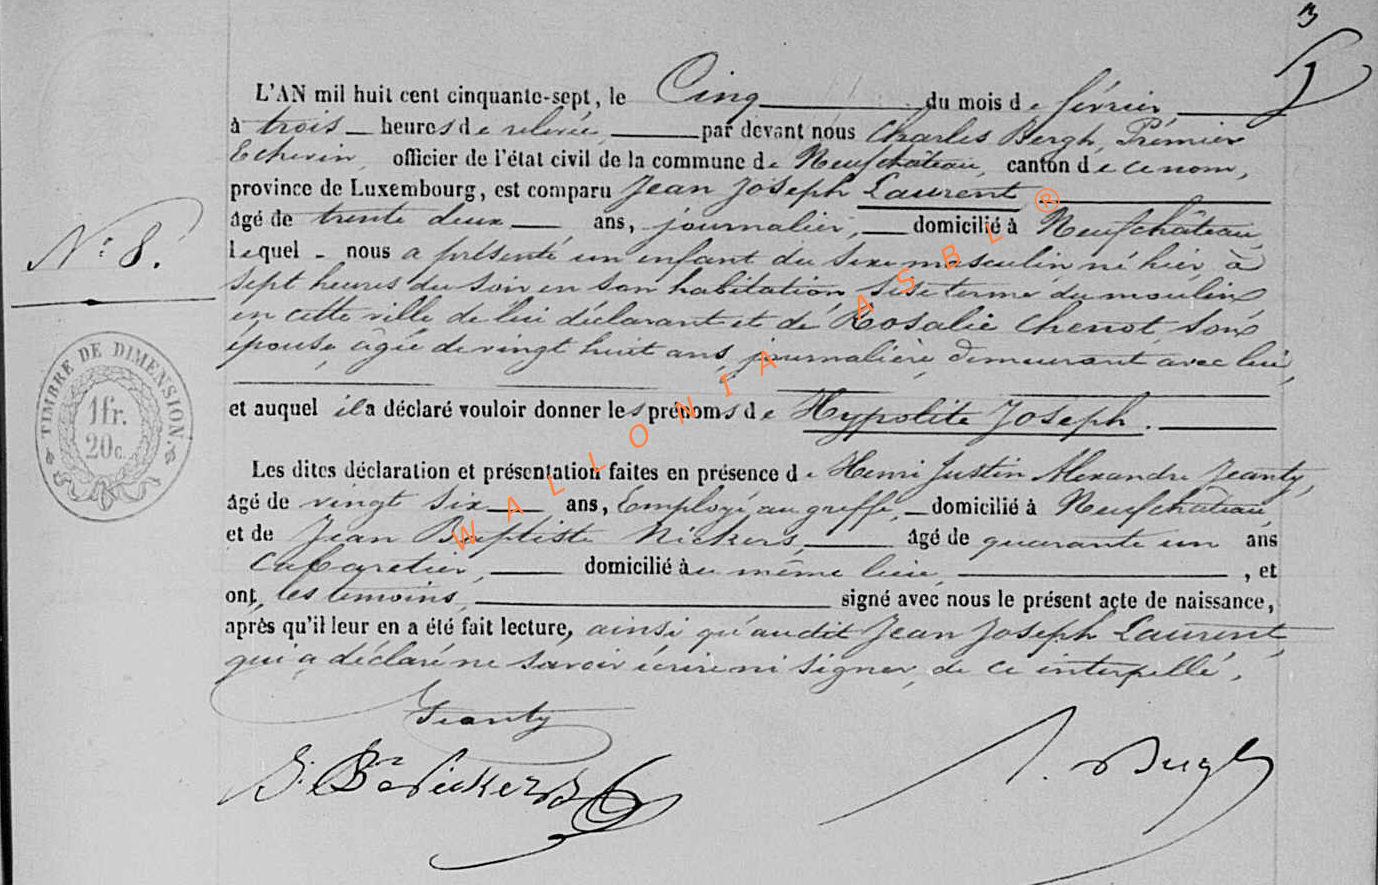 3
L'AN mil huit cent cinquante-sept, le Cinq du mois de février
à trois heures de relevée, par devant nous Charles Bergh, Prémier
Echevin, officier de l'état civil de la commune de Neufchâteau, canton de ce nom,
province de Luxembourg, est comparu Jean Joseph Laurent
âgé de trente deux ans, journalier, domicilié à Neufchâteau,
lequel nous a présenté un enfant du sexe masculin né hier, à
sept heures du soir en son habitation sise terme du moulin
en cette ville de lui déclarant et de Rosalie Chenot, son
épouse, âgée de vingt huit ans, journalière, demeurant avec lui,
et auquel il a déclaré vouloir donner les prénoms de Hypolite Joseph.
Les dites déclaration et présentation faites en présence de Henri Justin Alexandre Jeanty,
âgé de vingt six ans, Employé au greffe, domicilié à Neufchâteau,
et de Jean Baptiste Nickers, âgé de quarante un ans
Cabaretier, domicilié à u même lieu, , et
ont, les témoins, signé avec nous le présent acte de naissance,
après qu'il leur en a été fait lecture, ainsi qu'audit Jean Joseph Laurent,
qui a déclaré ne savoir écrire ni signer, de ce interpellé.
Jeanty
J. Bte Nickers
Bergh
N° 8.
TIMBRE DE DIMENSION.
1fr.
20c.
WALLONIA ASBL ®